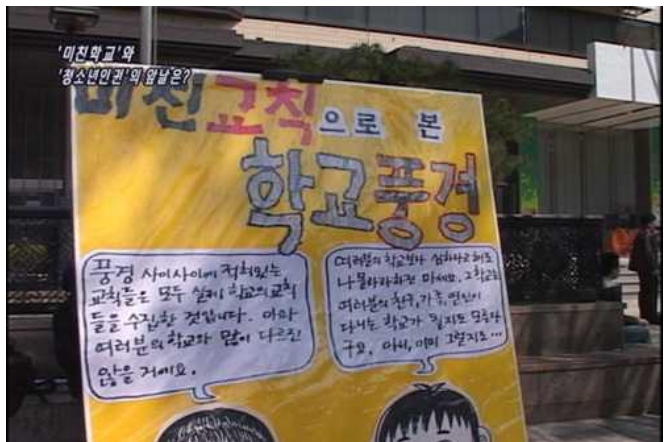 '미친학교'와
'청소년인권'의 앞날은?
미친교칙으로 본
학교풍경
풍경 사이사이에 적혀있는
교칙들은 모두 실제 학교의 교칙
들을 수집한 것입니다. 아마
여러분의 학교와 많이 다르진
않을 거예요.
여러분의 학교보다 심하다고 해도
나 몰라라하진 마세요. 그 학교는
여러분의 친구, 가족, 연인이
다니는 학교가 될지도 모른답
구요. 아니, 이미 그럴지도…